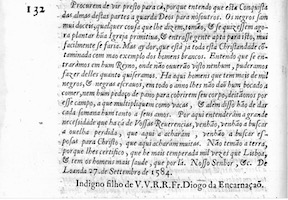 132
Procurem de vir presto para cà, porque entendo que esta Conquista
das almas destas partes a guarda Deus para nòsoutros. Os negros sam
mui doceis, qualquer cousa que lhe dizem, tomão, & se quizessem ago-
ra plantar hũa Igreja primitiva, & entrasse gente apta para isto, mui
facilmente se faria. Mas ay dor, que està ja toda esta Christandade cõ-
taminada com mao exemplo dos homens brancos. Entendo que se en-
trãramos em hum Reyno, onde não ouverão visto nenhum, pudèramos
fazer delles quanto quiseramos. Ha aqui homens que tem mais de mil
negros, & negras escravas, em todo o anno lhes não daõ hum bocado a
comer, nem hum palmo de pano para cobrirem seu corpo, deitãonos por
esse campo, a que multipliquem como vacas, & alem disso hão de dar
cada somana hum tanto a seus amos. Por aqui entenderão a grande
necessidade que ha cà de Vossas Reverencias, venhão, venhão a buscar
a ovelha perdida, que aqui a acharàm, venhão a buscar espo-
sas para Christo, que aqui acharam muitas. Não temão a terra,
porque lhes certifico, que he mais temperada mil vezes que Lisboa,
& tem os homens mais saude, que por là. Nosso Senhor, &c. De
Loanda 27. de Settembro de 1584.
Indigno filho de V.V.R.R. Fr. Diogo da Encarnaçaõ.